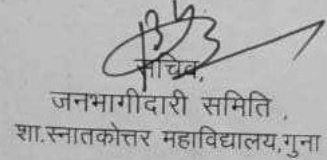 सचिव,
जनभागीदारी समिति ,
शा.स्नातकोत्तर महाविद्यालय,गुना